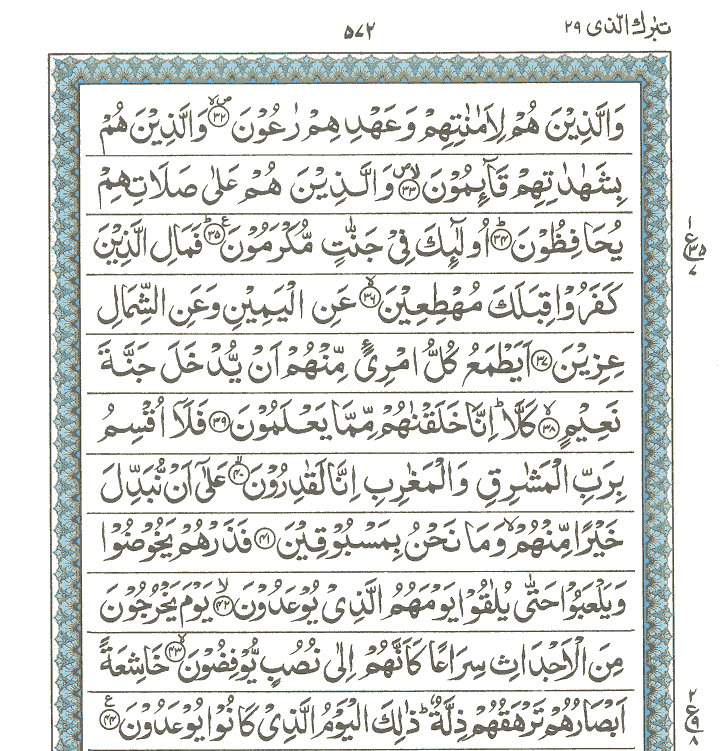 تبٰرك الّذی ٢٩
٥٧٢
وَالَّذِيْنَ هُمْ لِاَمٰنٰتِهِمْ وَعَهْدِهِمْ رٰعُوْنَ ﴿٣٢﴾ وَالَّذِيْنَ هُمْ
بِشَهٰدٰتِهِمْ قَآئِمُوْنَ ﴿٣٣﴾ وَالَّذِيْنَ هُمْ عَلٰى صَلَاتِهِمْ
يُحَافِظُوْنَ ﴿٣٤﴾ اُولٰٓئِكَ فِيْ جَنّٰتٍ مُّكْرَمُوْنَ ﴿٣٥﴾ فَمَالِ الَّذِيْنَ
كَفَرُوْا قِبَلَكَ مُهْطِعِيْنَ ﴿٣٦﴾ عَنِ الْيَمِيْنِ وَعَنِ الشِّمَالِ
عِزِيْنَ ﴿٣٧﴾ اَيَطْمَعُ كُلُّ امْرِئٍ مِّنْهُمْ اَنْ يُّدْخَلَ جَنَّةَ
نَعِيْمٍ ﴿٣٨﴾ كَلَّا ؕ اِنَّا خَلَقْنٰهُمْ مِّمَّا يَعْلَمُوْنَ ﴿٣٩﴾ فَلَاۤ اُقْسِمُ
بِرَبِّ الْمَشٰرِقِ وَالْمَغٰرِبِ اِنَّا لَقٰدِرُوْنَ ﴿٤٠﴾ عَلٰٓى اَنْ نُّبَدِّلَ
خَيْرًا مِّنْهُمْ ۙ وَمَا نَحْنُ بِمَسْبُوْقِيْنَ ﴿٤١﴾ فَذَرْهُمْ يَخُوْضُوْا
وَيَلْعَبُوْا حَتّٰى يُلٰقُوْا يَوْمَهُمُ الَّذِيْ يُوْعَدُوْنَ ﴿٤٢﴾ يَوْمَ يَخْرُجُوْنَ
مِنَ الْاَجْدَاثِ سِرَاعًا كَاَنَّهُمْ اِلٰى نُصُبٍ يُّوْفِضُوْنَ ﴿٤٣﴾ خَاشِعَةً
اَبْصَارُهُمْ تَرْهَقُهُمْ ذِلَّةٌ ؕ ذٰلِكَ الْيَوْمُ الَّذِيْ كَانُوْا يُوْعَدُوْنَ ﴿٤٤﴾
١
ع ٣٥
٧
٢
ع ٩
٨